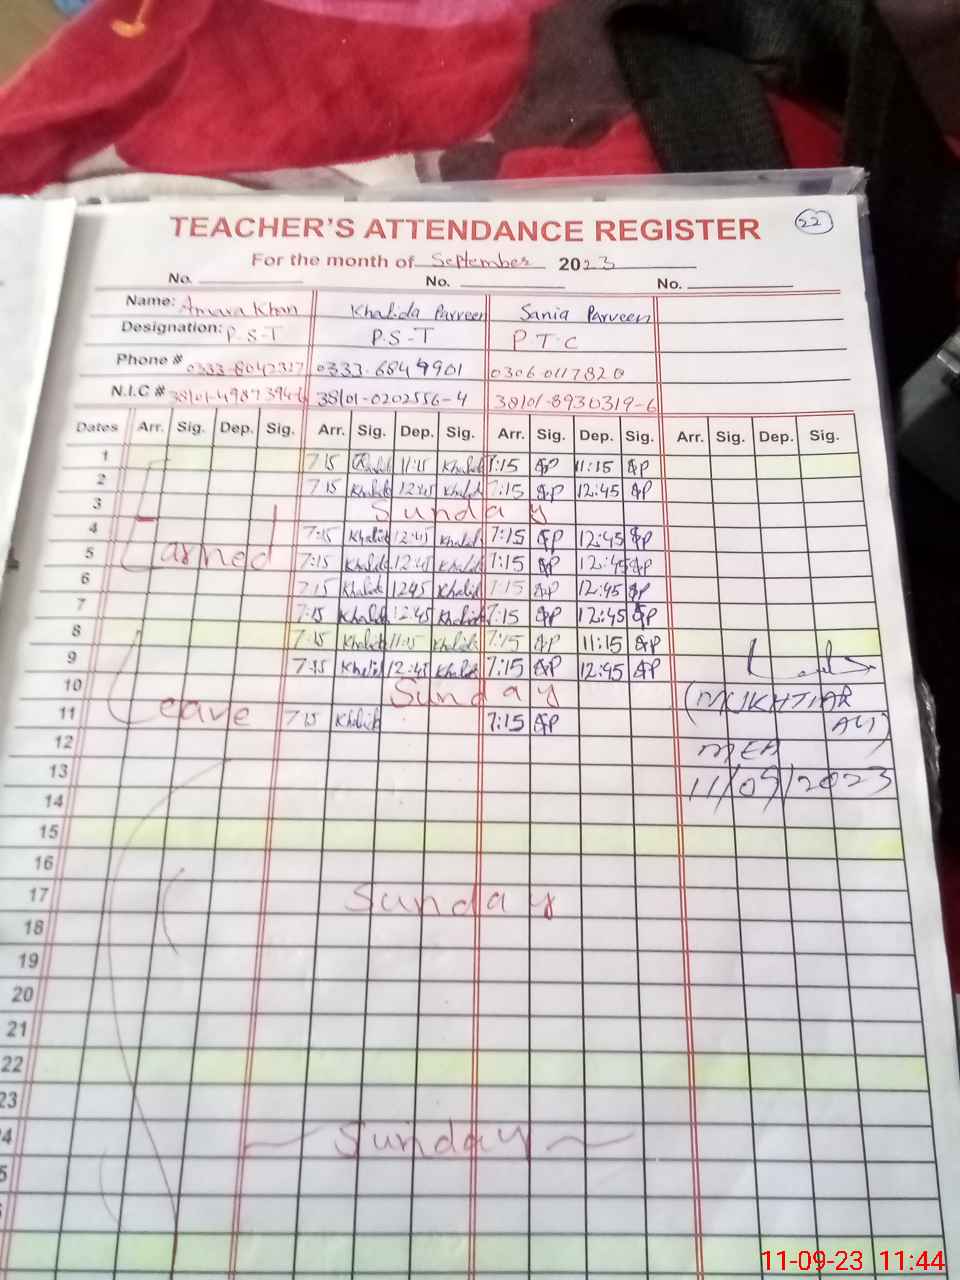 TEACHER'S ATTENDANCE REGISTER 22
For the month of September 2023
No. No. No.
Name: Amara Khan Khalida Parveen Sania Parveen
Designation: P.S-T P.S-T P.T.C
Phone # 0333-8042317 0333-6849901 0306-0117820
N.I.C # 38101-0202556-4 38101-8930319-6
Dates Arr. Sig. Dep. Sig. Arr. Sig. Dep. Sig. Arr. Sig. Dep. Sig. Arr. Sig. Dep. Sig.
1 7:15 Khalid 11:15 Khalid 7:15 SP 11:15 SP
2 7:15 Khalid 12:45 Khalid 7:15 SP 12:45 SP
3 Sunday
4 7:15 Khalid 12:45 Khalid 7:15 SP 12:45 SP
5 Earned 7:15 Khalid 12:45 Khalid 7:15 SP 12:45 SP
6 7:15 Khalid 12:45 Khalid 7:15 SP 12:45 SP
7 7:15 Khalid 12:45 Khalid 7:15 SP 12:45 SP
8 7:15 Khalid 11:15 Khalid 7:15 SP 11:15 SP
9 7:15 Khalid 12:45 Khalid 7:15 SP 12:45 SP
10 Sunday (MUKHTIAR
11 Leave 7:15 Khalid 7:15 SP ALI)
12 MEA
13 11/09/2023
14
15
16
17 Sunday
18
19
20
21
22
23
24 Sunday
11-09-23 11:44